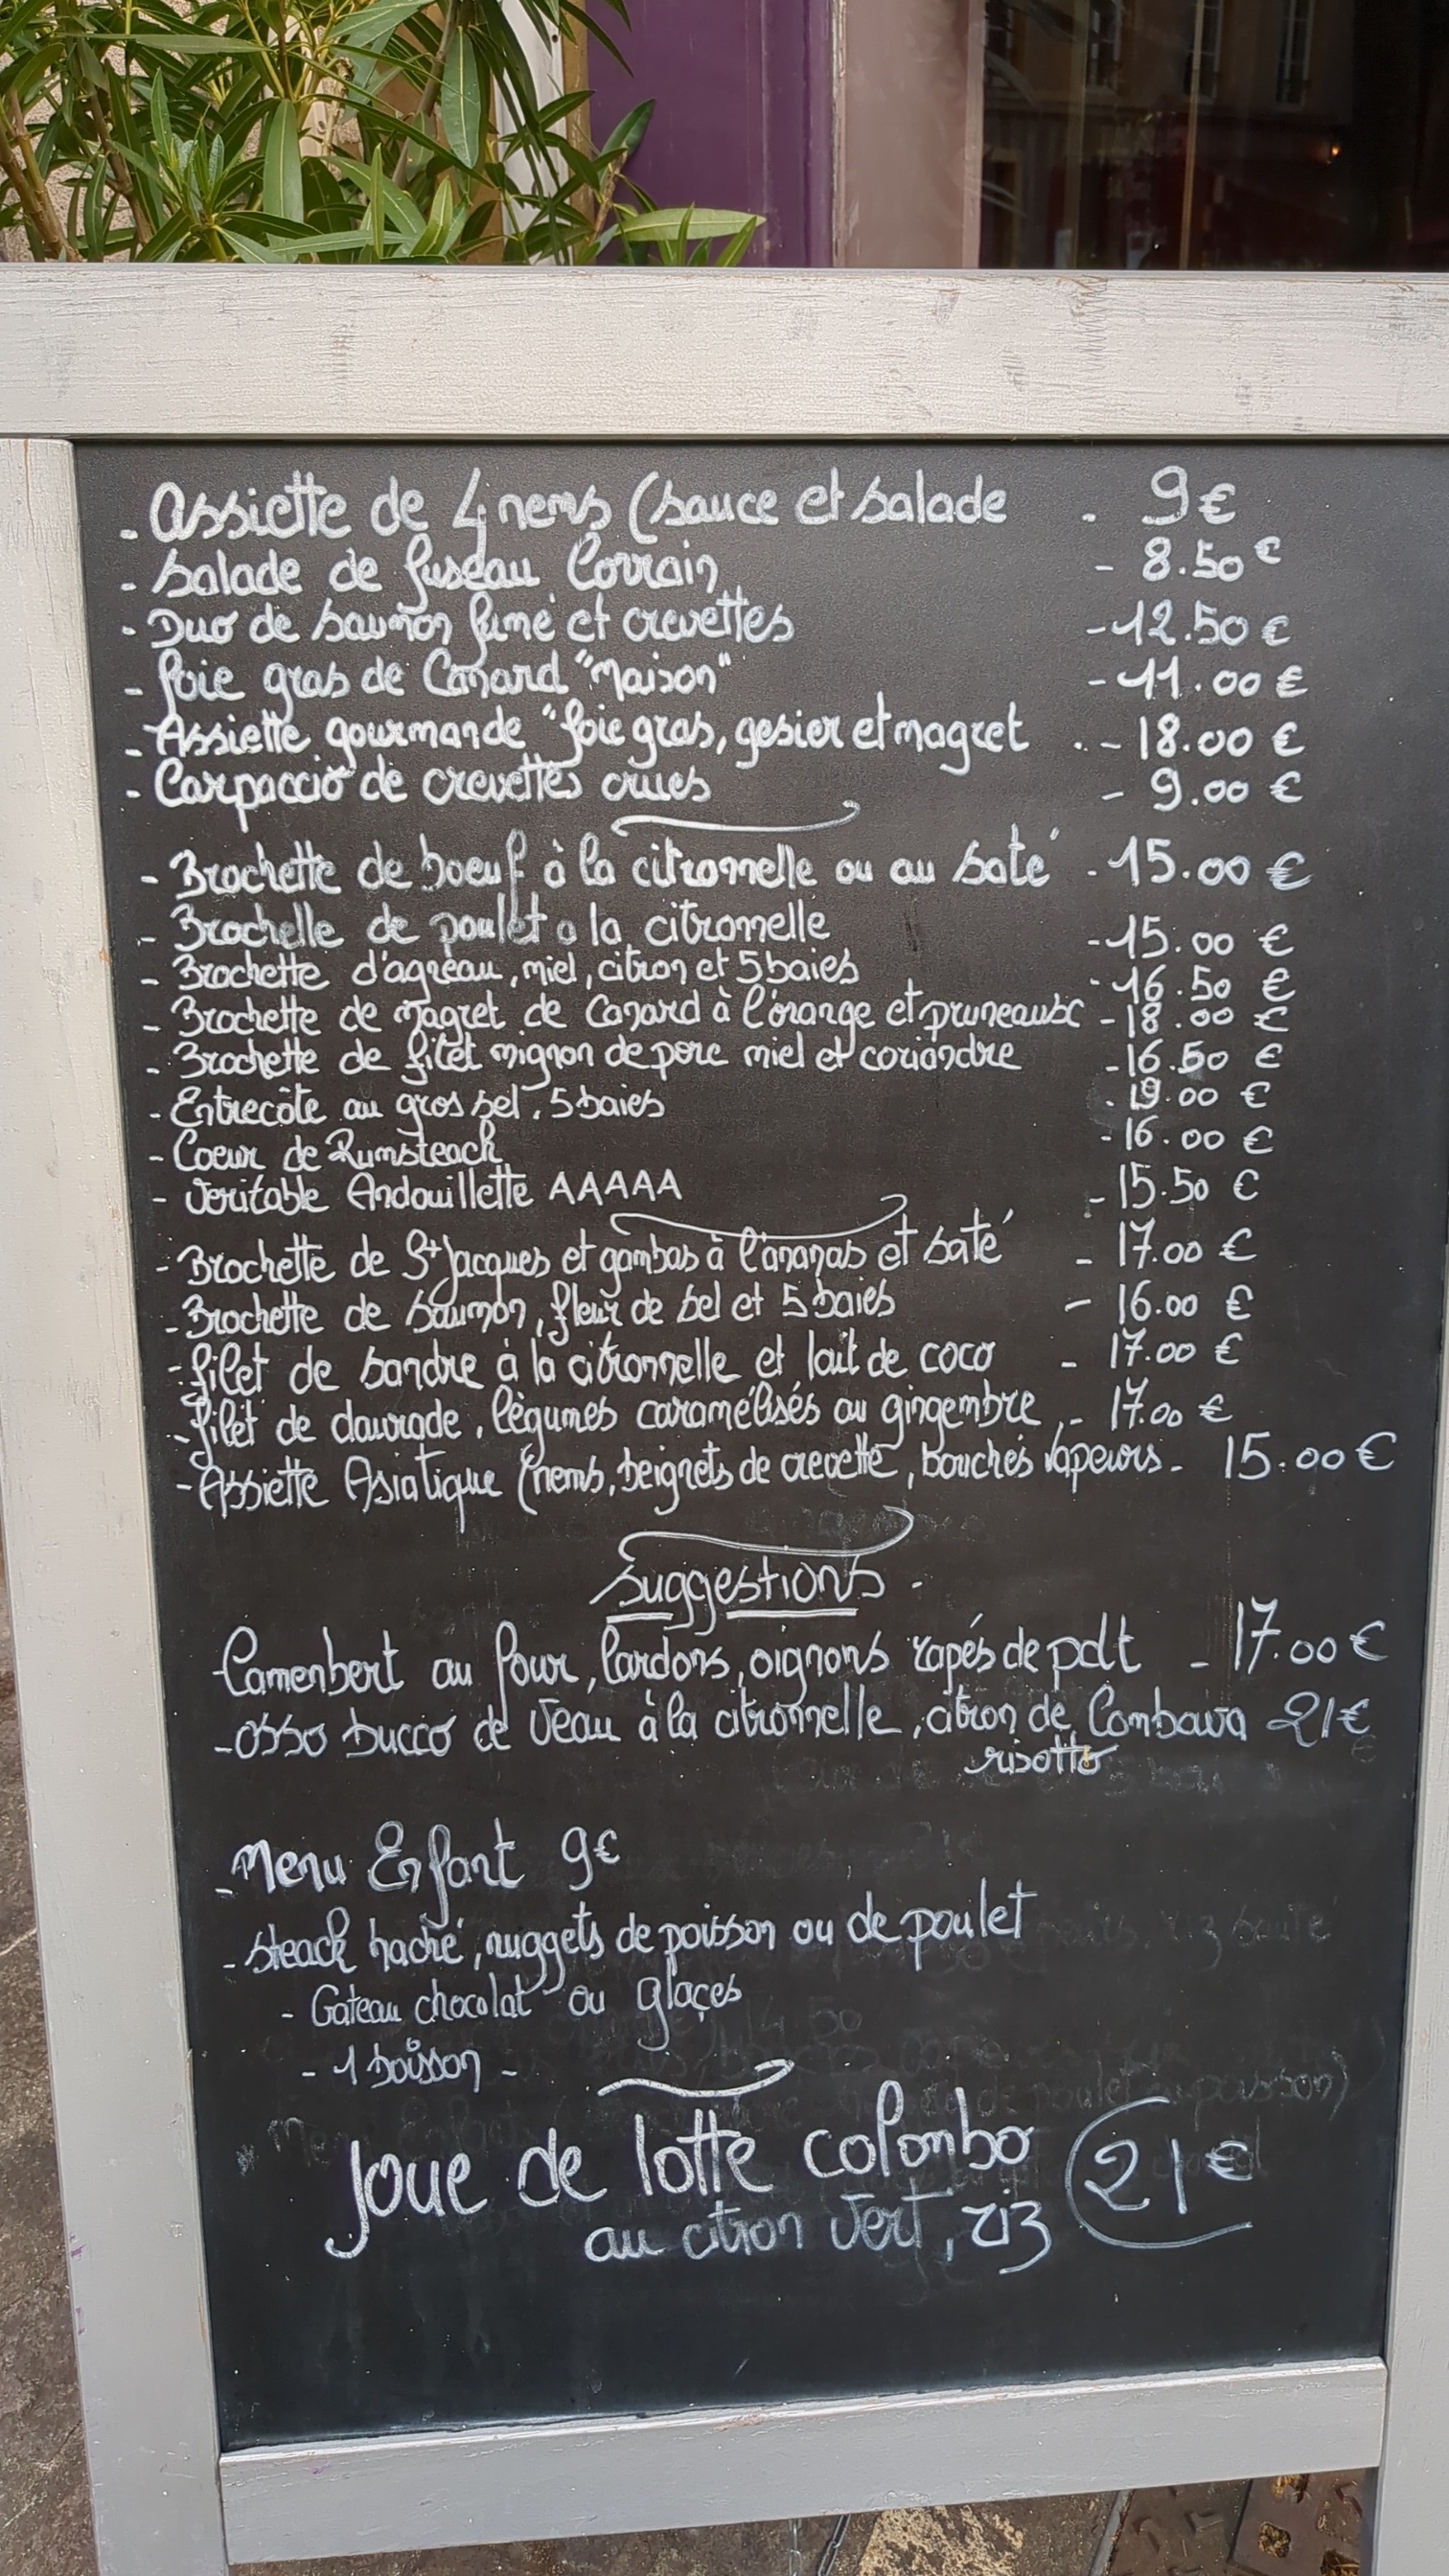 - Assiette de 4 nems (sauce et salade - 9€
- Salade de fuseau Lorrain - 8.50€
- Duo de saumon fumé et crevettes - 12.50€
- foie gras de Canard "Maison" - 11.00€
- Assiette gourmande "foie gras, gesier et magret .- 18.00€
- Carpaccio de crevettes crues - 9.00€
- Brochette de boeuf à la citronnelle ou au saté - 15.00€
- Brochette de poulet a la citronnelle - 15.00€
- Brochette d'agneau, miel, citron et 5 baies - 16.50€
- Brochette de magret de Canard à l'orange et pruneaux - 18.00€
- Brochette de filet mignon de porc miel et coriandre - 16.50€
- Entrecôte au gros sel, 5 baies - 19.00€
- Coeur de Rumsteack - 16.00€
- Veritable Andouillette AAAAA - 15.50€
- Brochette de St Jacques et gambas à l'ananas et saté - 17.00€
- Brochette de saumon, fleur de sel et 5 baies - 16.00€
- filet de sandre à la citronnelle et lait de coco - 17.00€
- filet de daurade, légumes caramélisés au gingembre - 17.00€
- Assiette Asiatique (nems, beignets de crevette, bouchés vapeurs - 15.00€
Suggestions.
Camembert au four, lardons, oignons rapés de pdt - 17.00€
- osso bucco de veau à la citronnelle, citron de Combava 21€
risotto
- Menu Enfant 9€
- steack haché, nuggets de poisson ou de poulet
- Gateau chocolat ou glaçes
- 1 boisson -
Joue de lotte colombo 21€
au citron vert, riz